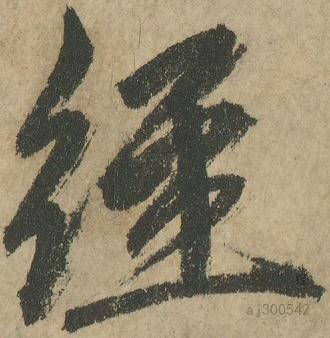 經
aj300542